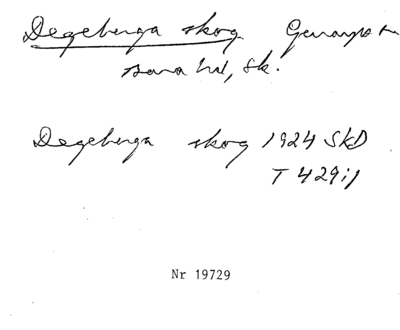 Degeberga skog Genarps sn
Bara hd, Sk.
Degeberga skog 1924 SkD
T 429:1
Nr 19729